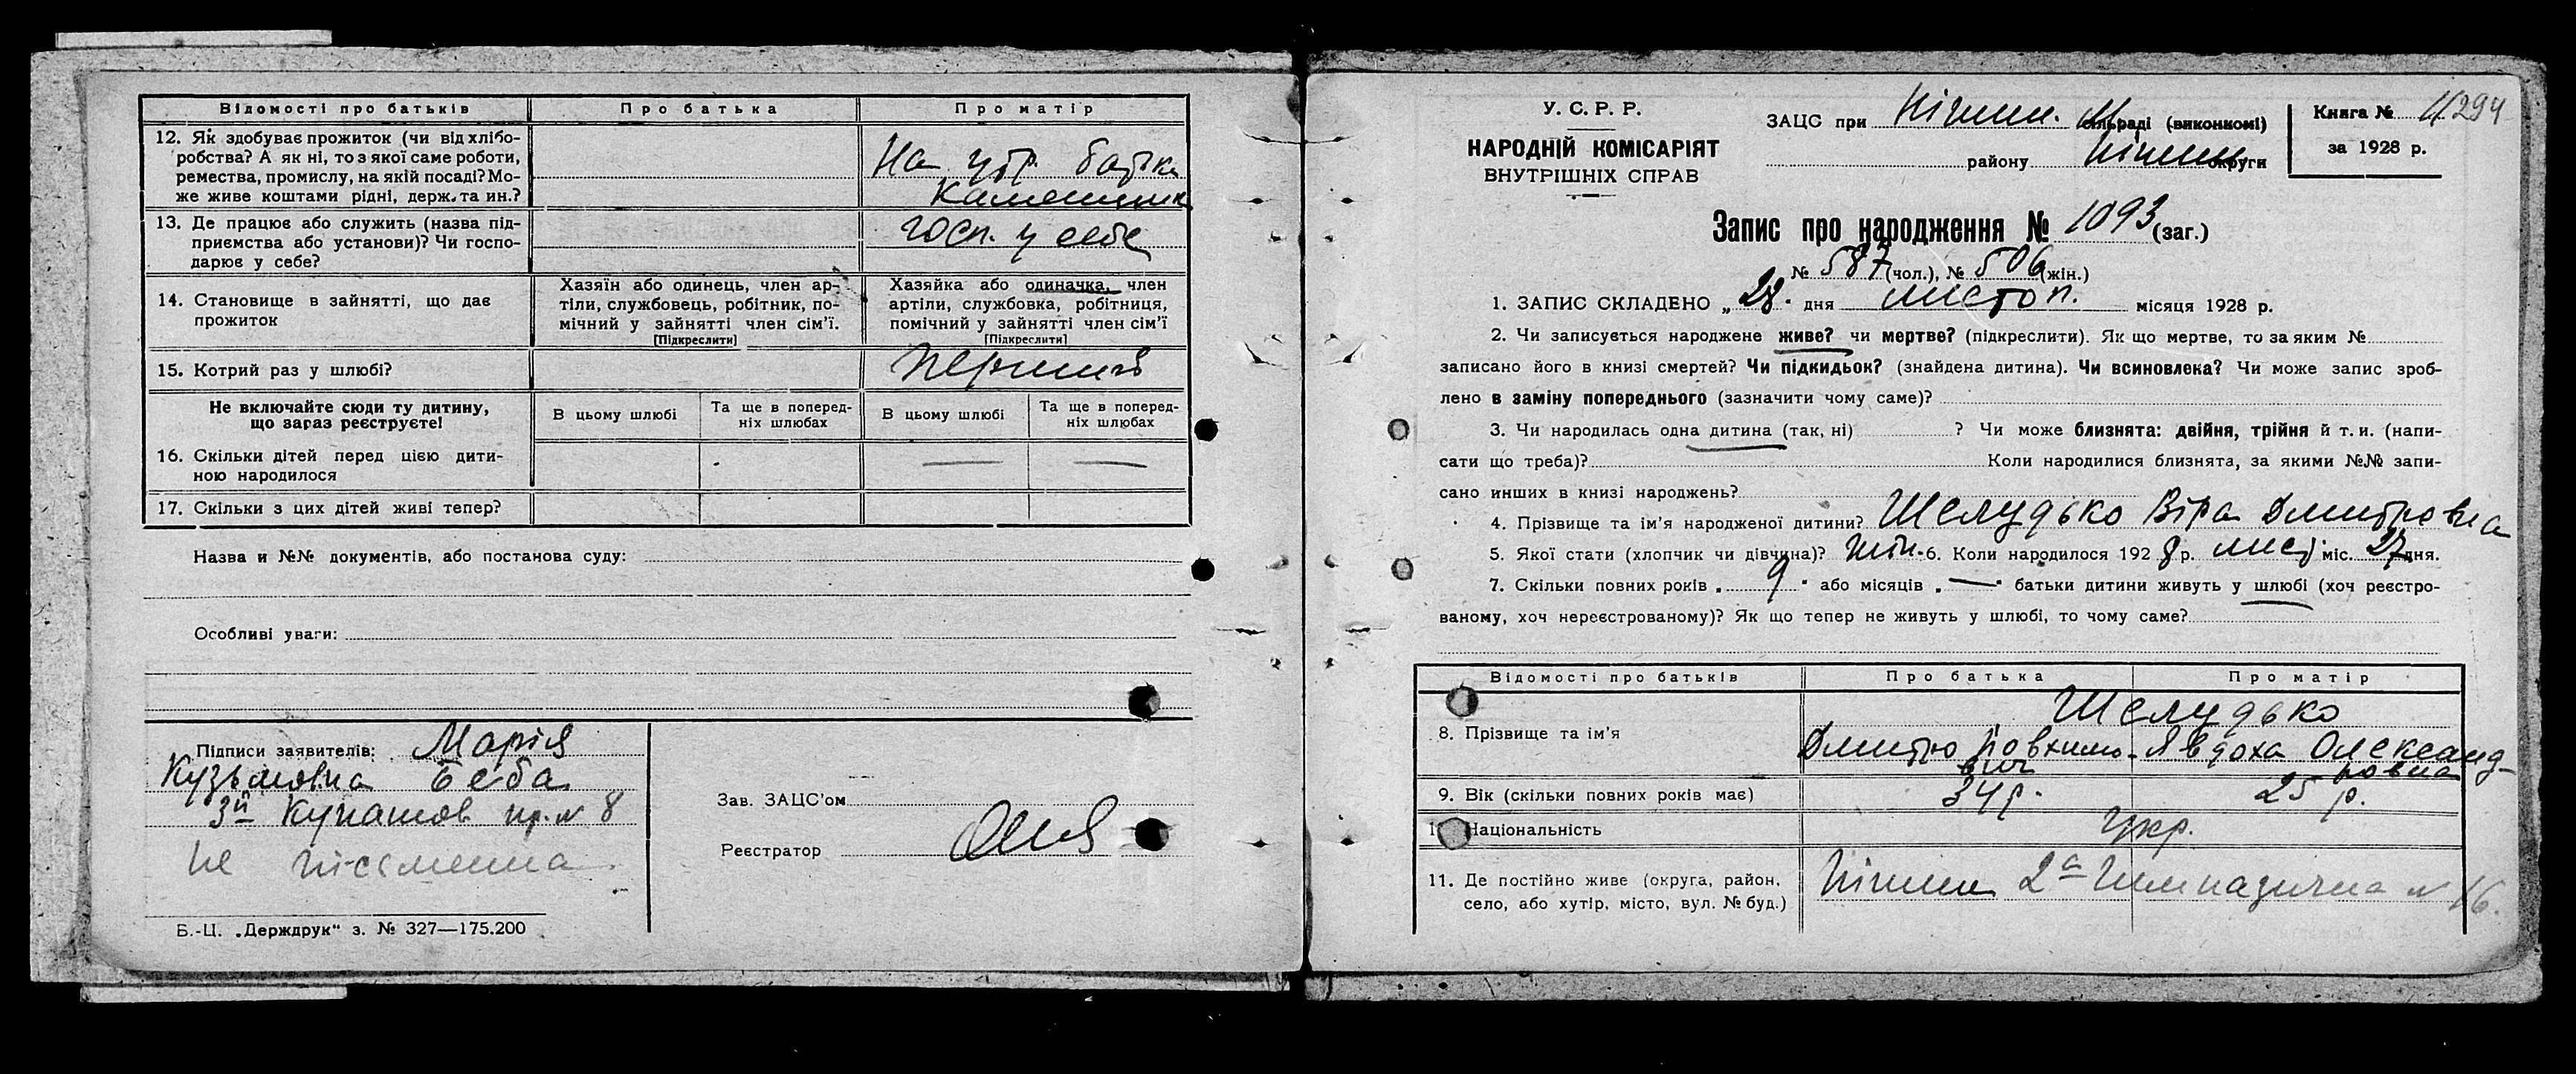 Відомості про батьків
Про батька
Про матір
12. Як здобуває прожиток (чи від хлібо-
робства? А як ні, то з якої саме роботи,
ремества, промислу, на якій посаді? Мо-
же живе коштами рідні, держ. та ин.?
На утр. батька
Каменщик
13. Де працює або служить (назва під-
приємства або установи)? Чи госпо-
дарює у себе?
госп. у себе
14. Становище в зайнятті, що дає
прожиток
Хазяїн або одинець, член ар-
тіли, службовець, робітник, по-
мічний у зайнятті член сім'ї.
[Підкреслити]
Хазяйка або одиначка, член
артіли, службовка, робітниця,
помічний у зайнятті член сім'ї
[Підкреслити]
15. Котрий раз у шлюбі?
перший
Не включайте сюди ту дитину,
що зараз реєструєте!
В цьому шлюбі
Та ще в поперед-
ніх шлюбах
В цьому шлюбі
Та ще в поперед-
ніх шлюбах
16. Скільки дітей перед цією дити-
ною народилося
— —
17. Скільки з цих дітей живі тепер?
Назва и №№ документів, або постанова суду:
Особливі уваги:
Підписи заявителів: Марія
Кузьмовна Беба
3й Купашов пр. № 8
не письменна
Зав. ЗАЦС'ом
Реєстратор
Б.-Ц. „Держдрук" з. № 327—175.200
У. С. Р. Р.
НАРОДНІЙ КОМІСАРІЯТ
ВНУТРІШНІХ СПРАВ
ЗАЦС при Ніжин. сільраді (виконкомі)
району Ніжин округи
Книга № 4 294
за 1928 р.
Запис про народження № 1093 (заг.)
№ 587 (чол.), № 506 (жін.)
1. ЗАПИС СКЛАДЕНО „28" дня листоп. місяця 1928 р.
2. Чи записується народжене живе? чи мертве? (підкреслити). Як що мертве, то за яким №
записано його в книзі смертей? Чи підкидьок? (знайдена дитина). Чи всиновлека? Чи може запис зроб-
лено в заміну попереднього (зазначити чому саме)?
3. Чи народилась одна дитина (так, ні) ? Чи може близнята: двійня, трійня й т. и. (напи-
сати що треба)? Коли народилися близнята, за якими №№ запи-
сано инших в книзі народжень?
4. Прізвище та ім'я народженої дитини? Шелудько Віра Дмитровна
5. Якої стати (хлопчик чи дівчина)? жін. 6. Коли народилося 1928 р. лист міс. 27 дня.
7. Скільки повних років „ 9 " або місяців „ — " батьки дитини живуть у шлюбі (хоч реєстро-
ваному, хоч нереєстрованому)? Як що тепер не живуть у шлюбі, то чому саме?
Відомості про батьків
Про батька
Про матір
8. Прізвище та ім'я
Шелудько
Дмитро Йовхимо-
вич
Явдоха Олександ-
ровна
9. Вік (скільки повних років має)
34 р.
25 р.
Національність
Укр.
11. Де постійно живе (округа, район,
село, або хутір, місто, вул. № буд.)
Ніжин 2а Гімназична № 16.